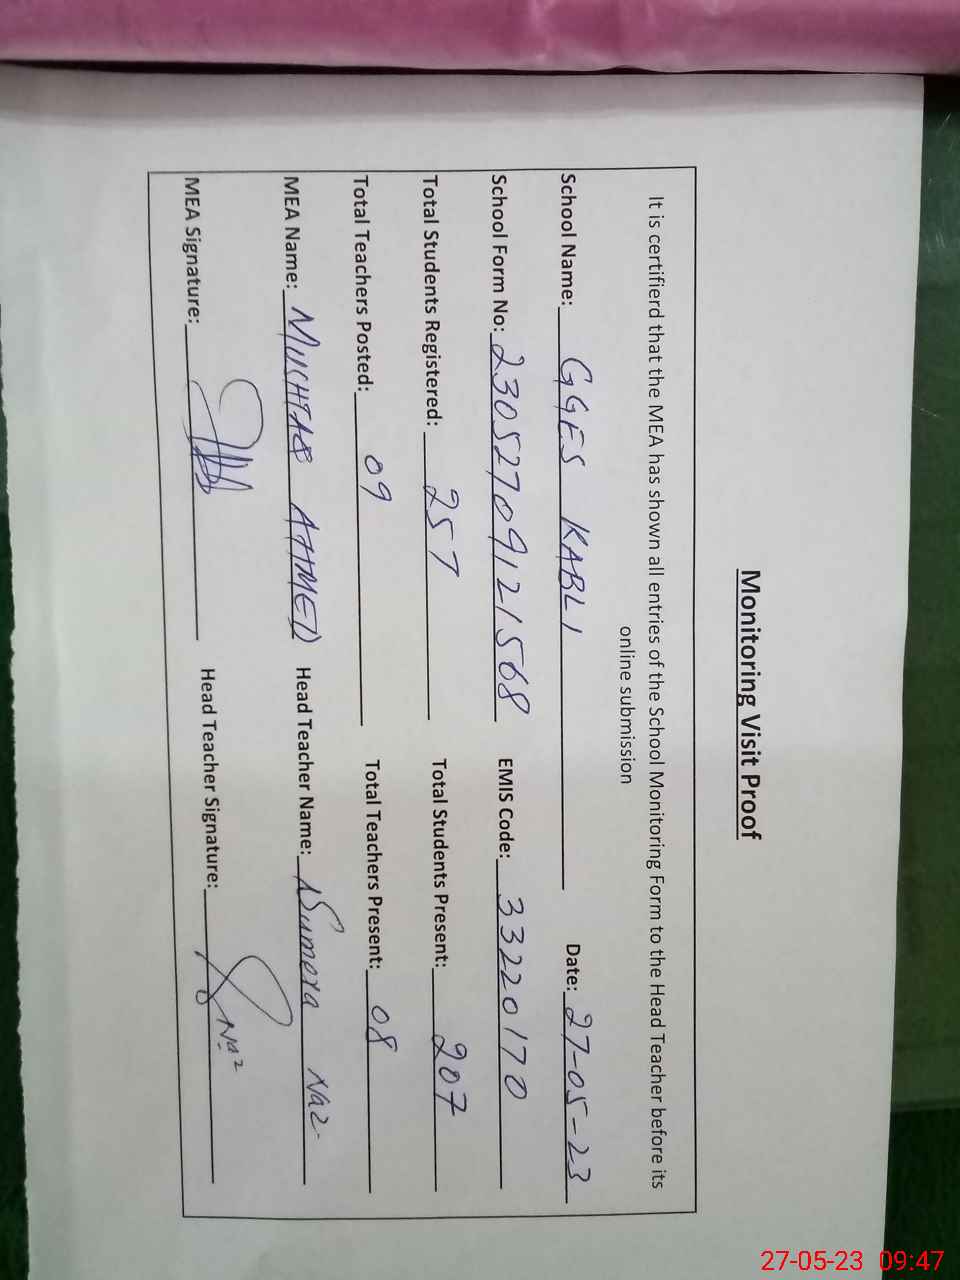 Monitoring Visit Proof
It is certifierd that the MEA has shown all entries of the School Monitoring Form to the Head Teacher before its
online submission
School Name: GGES KABLI Date: 27-05-23
School Form No: 23052709121568 EMIS Code: 33220170
Total Students Registered: 257 Total Students Present: 207
Total Teachers Posted: 09 Total Teachers Present: 08
MEA Name: MUSHTAB AHMED Head Teacher Name: Sumera Naz
MEA Signature: Head Teacher Signature: Naz
27-05-23 09:47